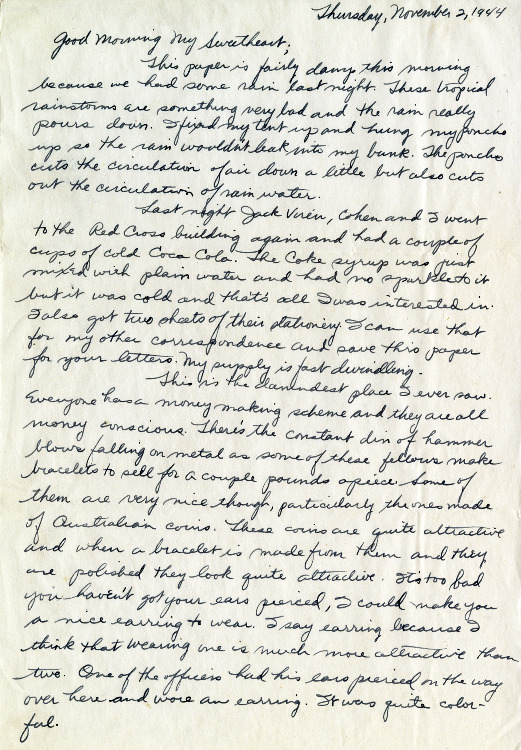 Thursday, November 2, 1944
Good Morning My Sweetheart;
This paper is fairly damp this morning
because we had some rain last night. These tropical
rainstorms are something very bad and the rain really
pours down. I fixed my tent up and hung my poncho
up so the rain wouldn't leak into my bunk. The poncho
cuts the circulation of air down a little but also cuts
out the circulation of rain water.
Last night Jack Viren, Cohen and I went
to the Red Cross building again and had a couple of
cups of cold Coca Cola. The Coke syrup was just
mixed with plain water and had no sparkle to it
but it was cold and that's all I was interested in.
I also got two sheets of their stationery. I can use that
for my other correspondence and save this paper
for your letters. My supply is fast dwindling.
This is the damndest place I ever saw.
Everyone has a money making scheme and they are all
money conscious. There's the constant din of hammer
blows falling on metal as some of these fellows make
bracelets to sell for a couple pounds apiece. Some of
them are very nice though, particularly the ones made
of Australian coins. These coins are quite attractive
and when a bracelet is made from them and they
are polished they look quite attractive. It's too bad
you haven't got your ears pierced, I could make you
a nice earring to wear. I say earring because I
think that wearing one is much more attractive than
two. One of the officers had his ears pierced on the way
over here and wore an earring. It was quite color-
ful.